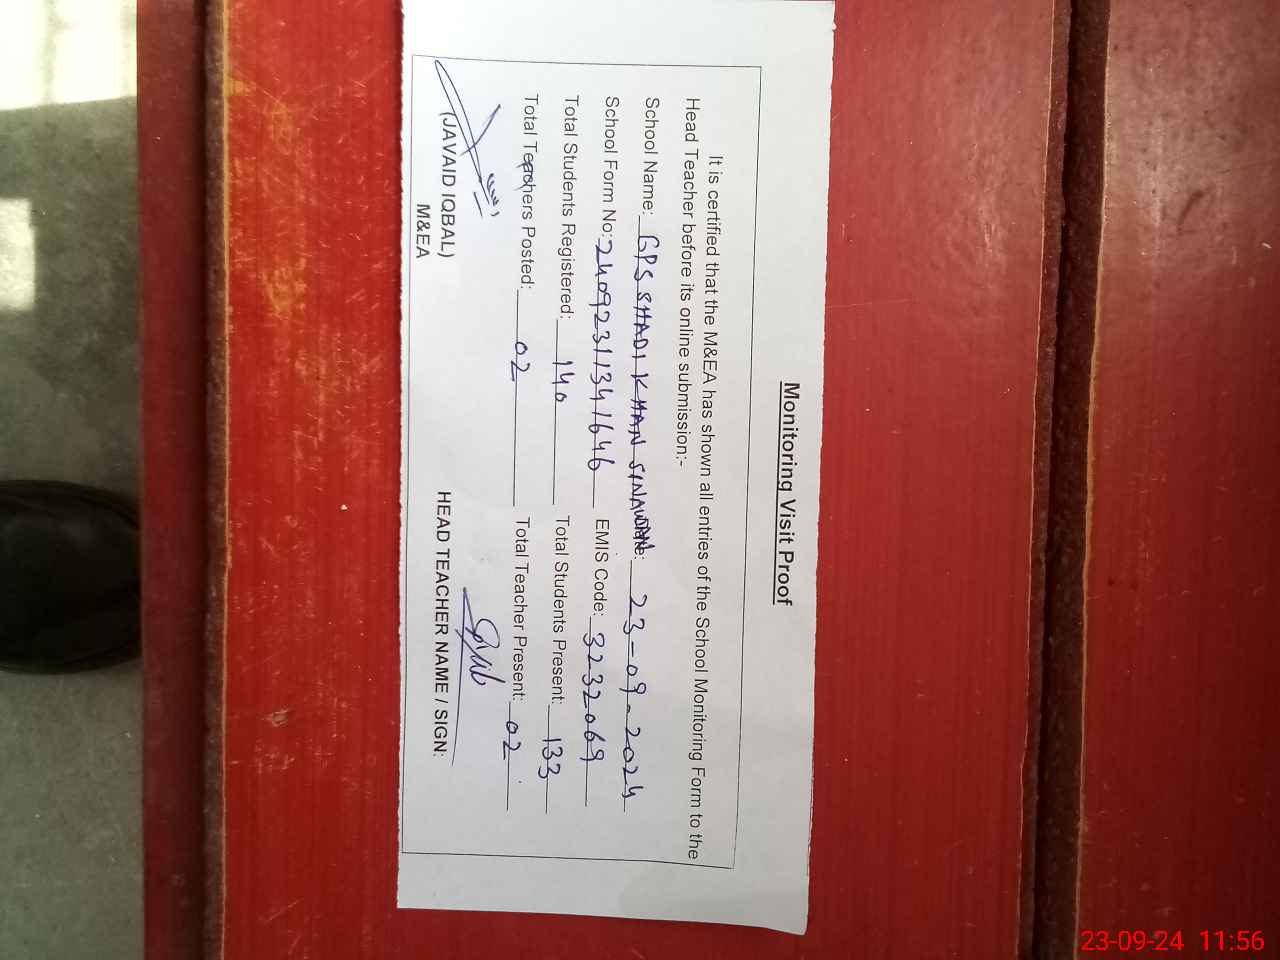 Monitoring Visit Proof
It is certified that the M&EA has shown all entries of the School Monitoring Form to the
Head Teacher before its online submission:-
School Name: GPS SHADI KHAN SINAWAN Date: 23-09-2024
School Form No: 24092311341646 EMIS Code: 32320069
Total Students Registered: 140 Total Students Present: 133
Total Teachers Posted: 02 Total Teacher Present: 02
(JAVAID IQBAL) HEAD TEACHER NAME / SIGN:
M&EA
23-09-24 11:56